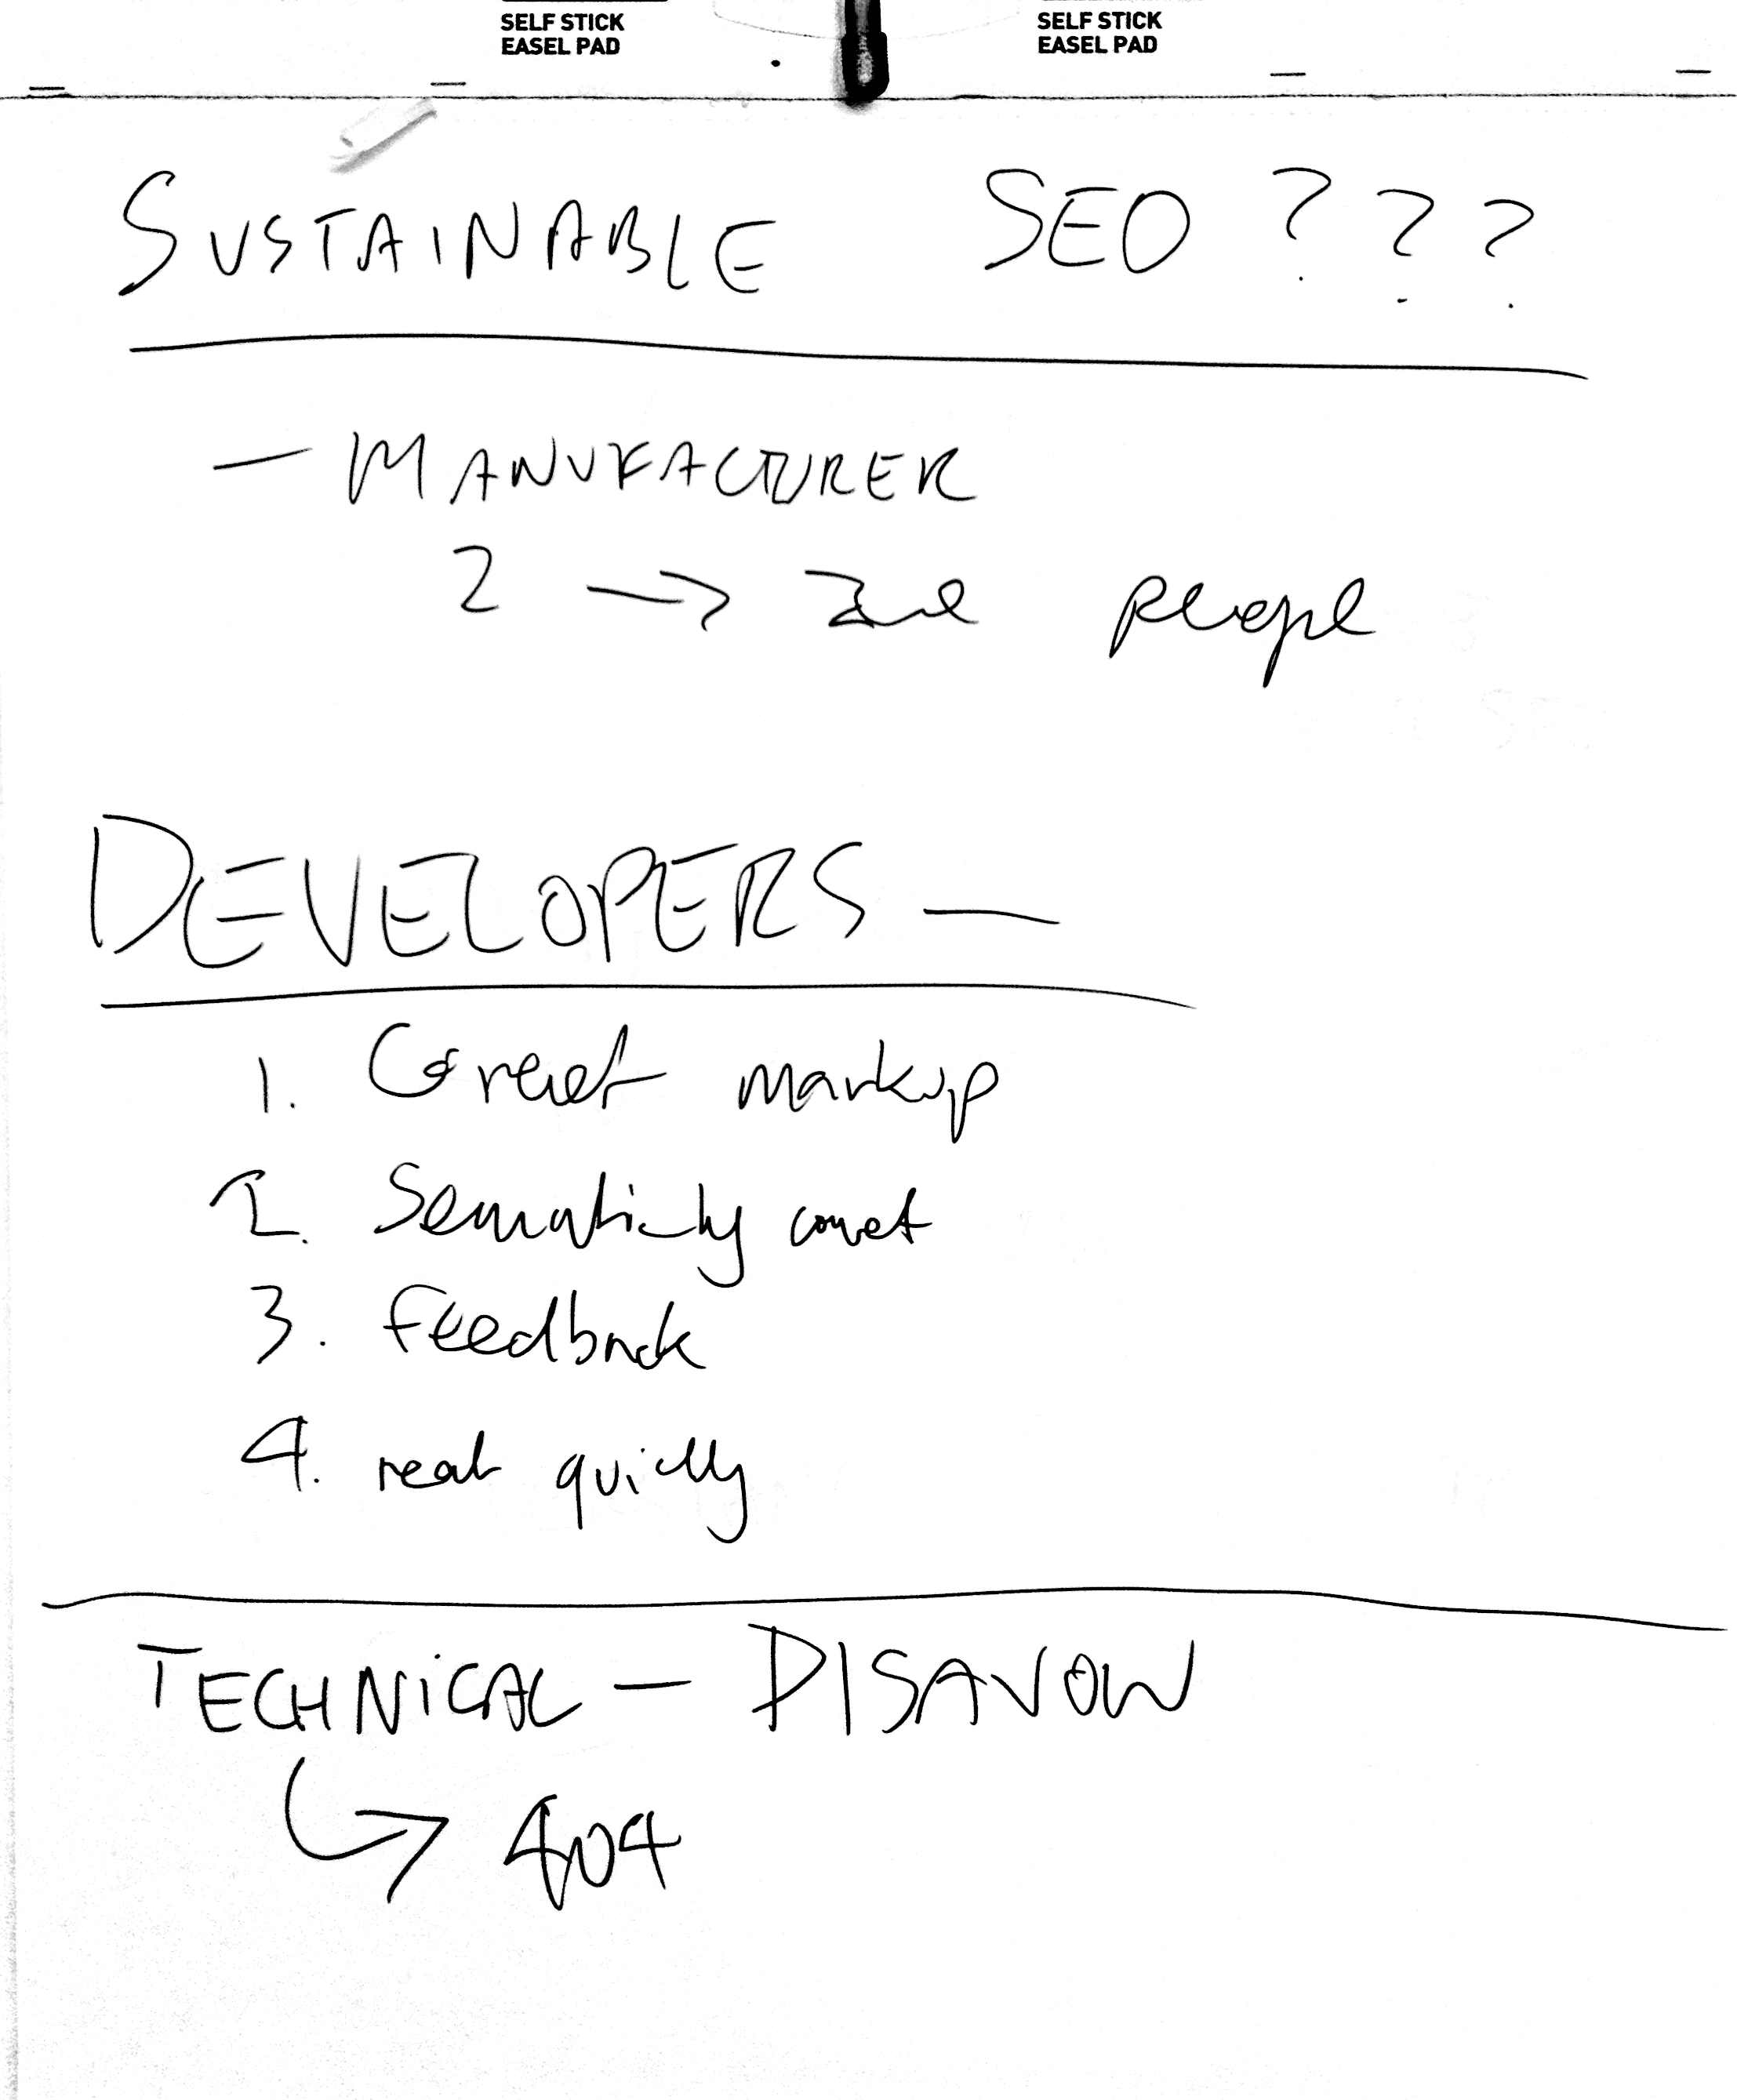 SELF STICK SELF STICK
EASEL PAD EASEL PAD
SUSTAINABLE SEO ? ? ?
— MANUFACTURER
2 → people
DEVELOPERS —
1. Correct markup
2. Sematicly correct
3. Feedback
4. react quickly
TECHNICAL — DISAVOW
↳ 404